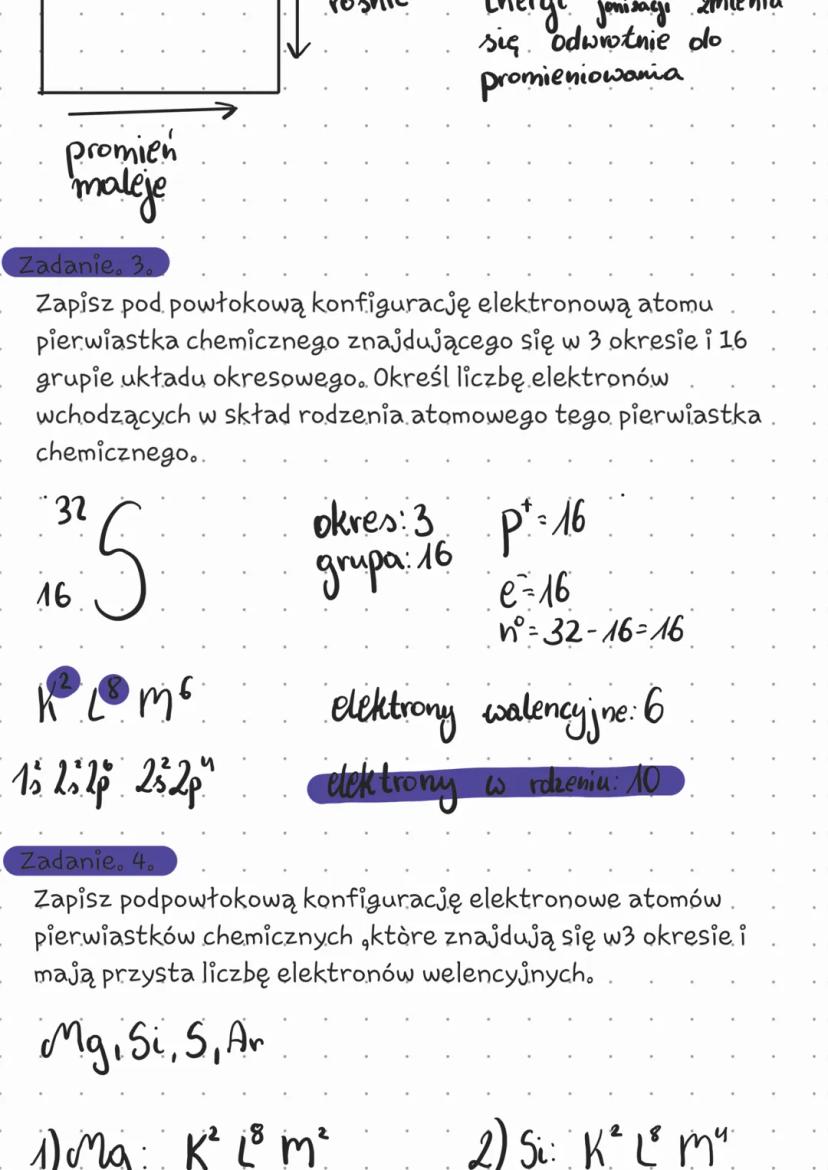 rośnie
Energi jonizacji zmienia
się odwrotnie do
promieniowania
promień
maleje
Zadanie. 3.
Zapisz pod powłokową konfigurację elektronową atomu
pierwiastka chemicznego znajdującego się w 3 okresie i 16
grupie układu okresowego. Określ liczbę elektronów
wchodzących w skład rodzenia atomowego tego pierwiastka
chemicznego.
32
16 S
okres: 3
grupa: 16
p⁺ = 16
e⁻ = 16
n⁰ = 32 - 16 = 16
K² L⁸ M⁶
elektrony walencyjne: 6
1s² 2s² 2p⁶ 2s² 2p⁴
elektrony w rdzeniu: 10
Zadanie. 4.
Zapisz podpowłokową konfigurację elektronowe atomów
pierwiastków chemicznych ,które znajdują się w3 okresie i
mają przysta liczbę elektronów welencyjnych.
Mg, Si, S, Ar
1) Mg: K² L⁸ M²
2) Si: K² L⁸ M⁴